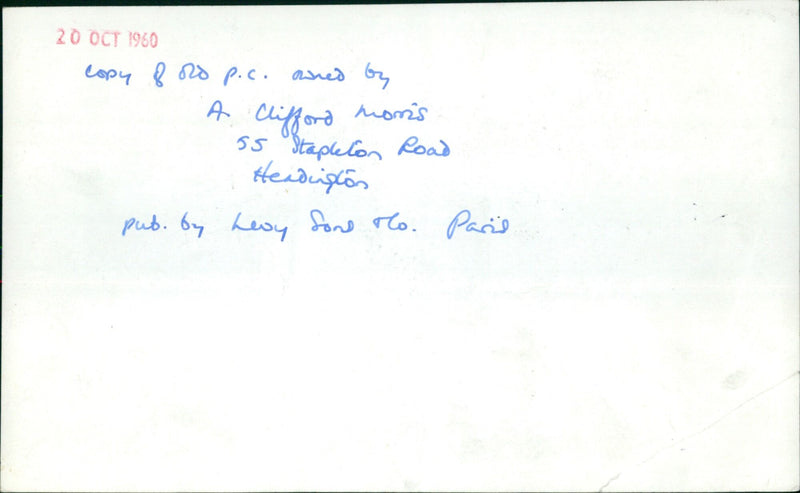 20 OCT 1960
copy of old p.c. owned by
A. Clifford Morris
55 Stapleton Road
Headington
pub. by Levy Sons & Co. Paris